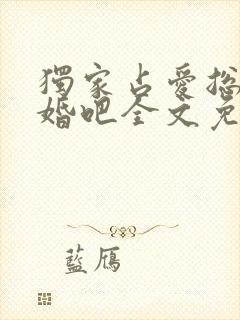 獨家占愛總
婚吧全文免
藍鴈